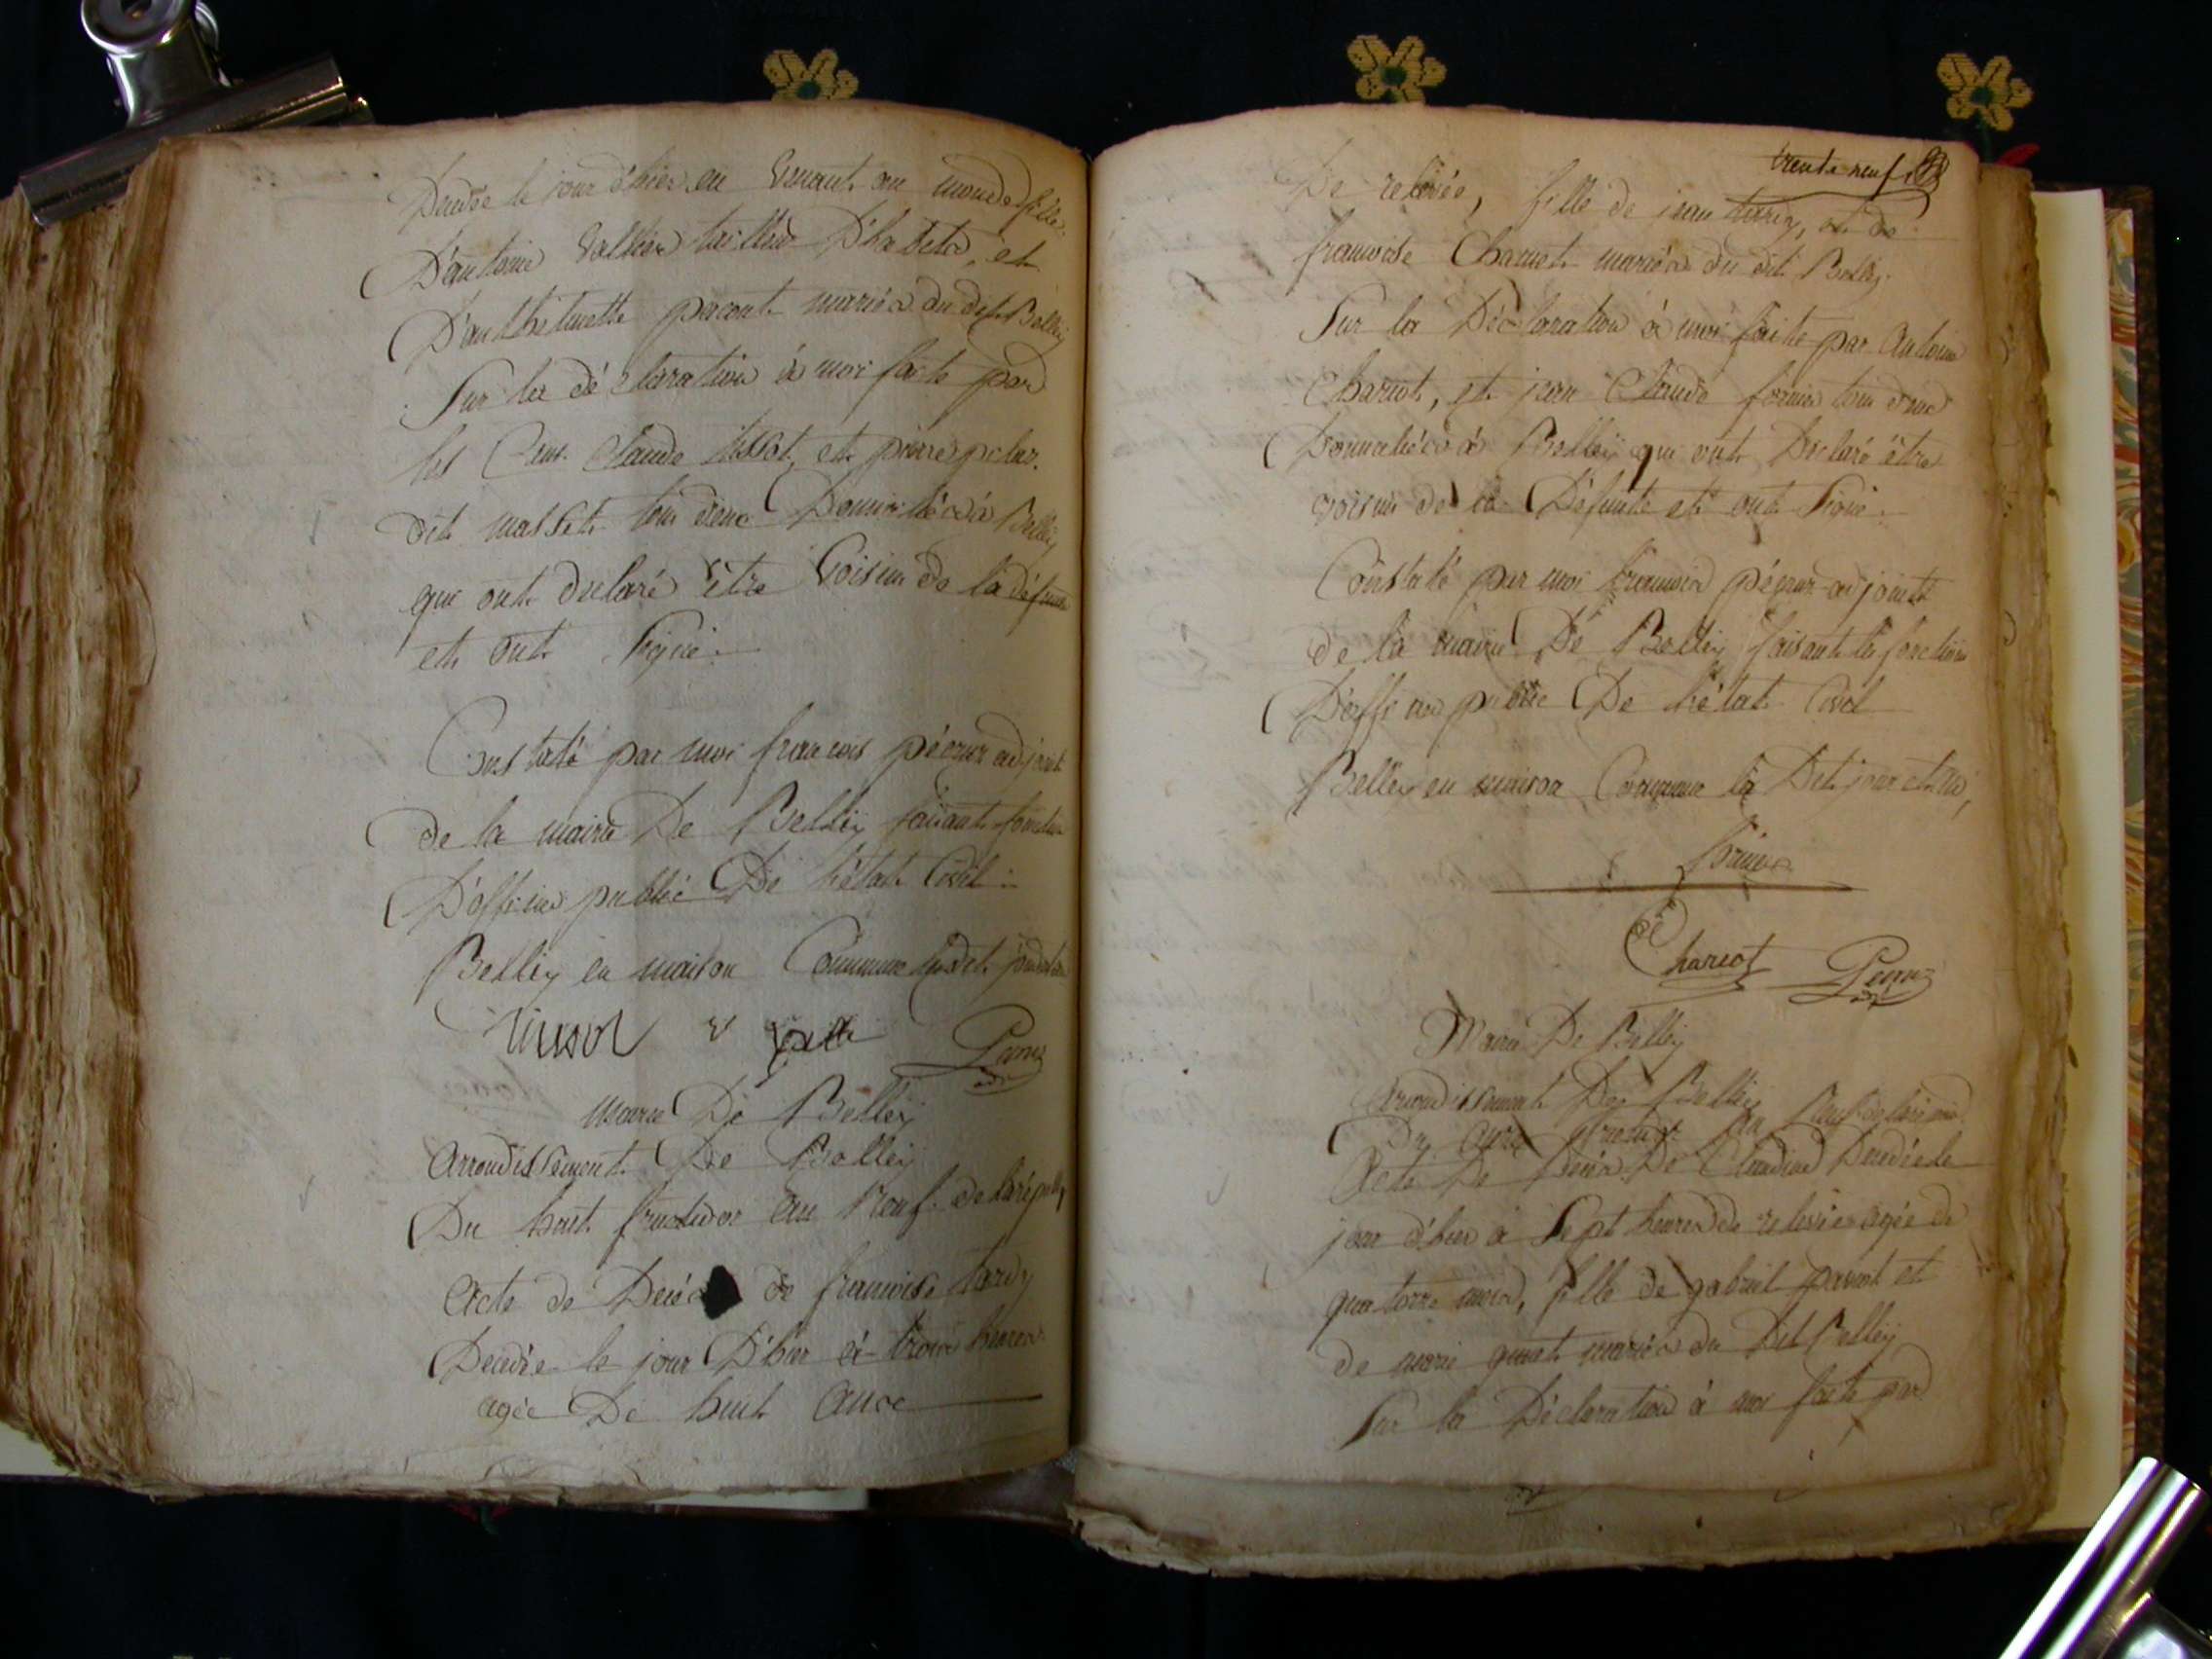 le jour d'hier en venant au monde fille
D'antoine tailleur D'habits, et
mariés du dit Belley
Sur la déclaration à moi faite par
les Claude tissot, et pierre
dit masset tous deux Domiciliés à Belley
qui ont declaré être Voisins de la défunte
et ont Signé.
Constaté par moi francois adjoint
de la mairie De Belley faisant fonction
D'officier public De l'état Civil
Belley en maison Commune ledit jour
mairie De Belley
Arrondissement De Belley
Du huit fructidor an Neuf de la
Acte de Decés de francoise tardy
Decedée le jour D'hier à trois heures
agée De huit ans
trente neuf
De relevée, fille de jean tardy, et de
francoise Charcot mariés du dit Belley
Sur la Déclaration à moi faite par Antoine
Charcot, et jean Claude tous deux
Domiciliés à Belley qui ont Declaré être
voisins de la Défunte et ont Signé
Constaté par moi francois adjoint
de la mairie De Belley faisant les fonctions
D'officier public De l'état Civil
Belley en maison Commune le Dit jour et an,
Charcot
Mairie De Belley
Arrondissement De Belley
Du fructidor an Neuf
Acte De Decés De Claudine Decedée le
jour d'hier à Sept heures de relevée agée de
quatorze mois, fille de gabriel et
de marie mariés du Dit Belley
Sur la Déclaration à moi faite par